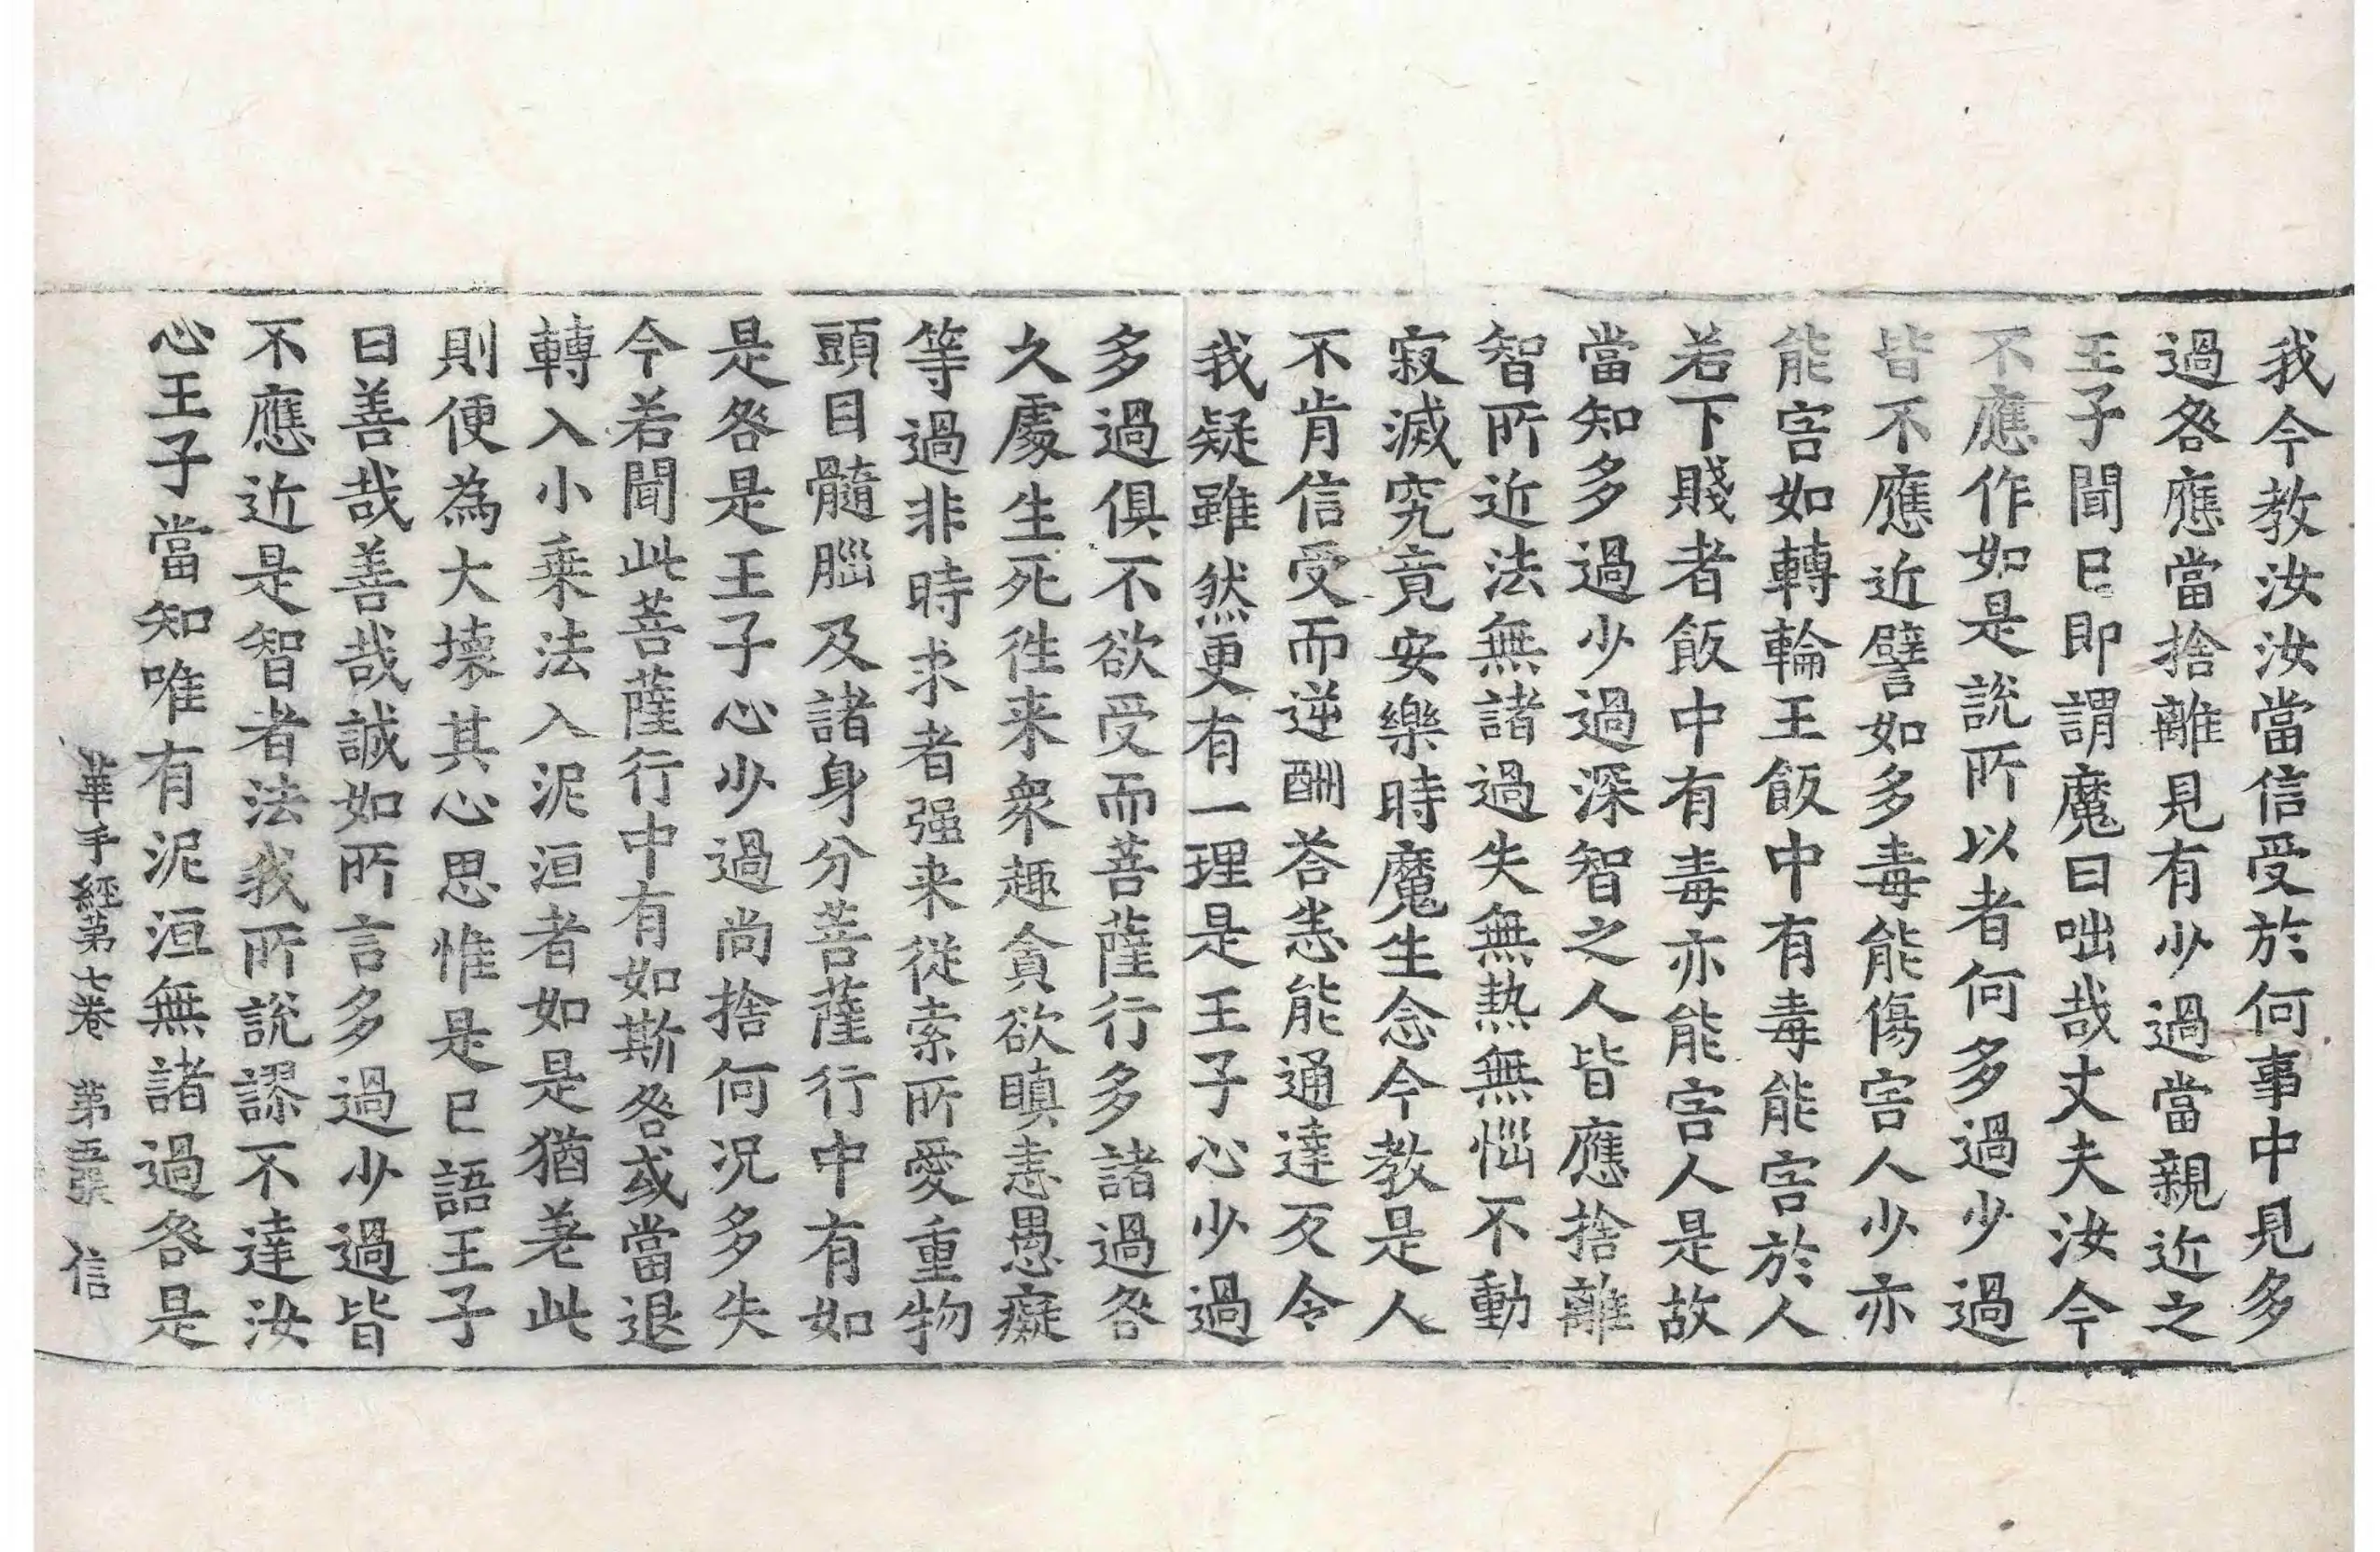 我今教汝汝當信受於何事中見多
過咎應當捨離見有少過當親近之
王子聞已即謂魔曰咄哉丈夫汝今
不應作如是說所以者何多過少過
皆不應近譬如多毒能傷害人少亦
能害如轉輪王飯中有毒能害於人
若下賤者飯中有毒亦能害人是故
當知多過少過深智之人皆應捨離
智所近法無諸過失無熱無惱不動
寂滅究竟安樂時魔生念今教是人
不肯信受而逆酬荅恙能通達反令
我疑雖然更有一理是王子心少過
多過俱不欲受而菩薩行多諸過咎
久處生死徃来衆趣貪欲瞋恚愚癡
等過非時求者强来從索所愛重物
頭目髓腦及諸身分菩薩行中有如
是咎是王子心少過尚捨何況多失
今若聞此菩薩行中有如斯咎或當退
轉入小乗法入泥洹者如是猶若此
則便為大壊其心思惟是已語王子
曰善哉善哉誠如所言多過少過皆
不應近是智者法我所說謬不達汝
心王子當知唯有泥洹無諸過咎是
華手經第七卷 第五張 信